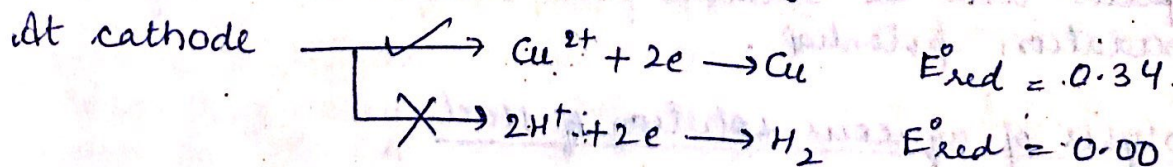 At cathode ✓→ Cu²⁺ + 2e → Cu E°red = 0.34
✗→ 2H⁺ + 2e → H₂ E°red = 0.00